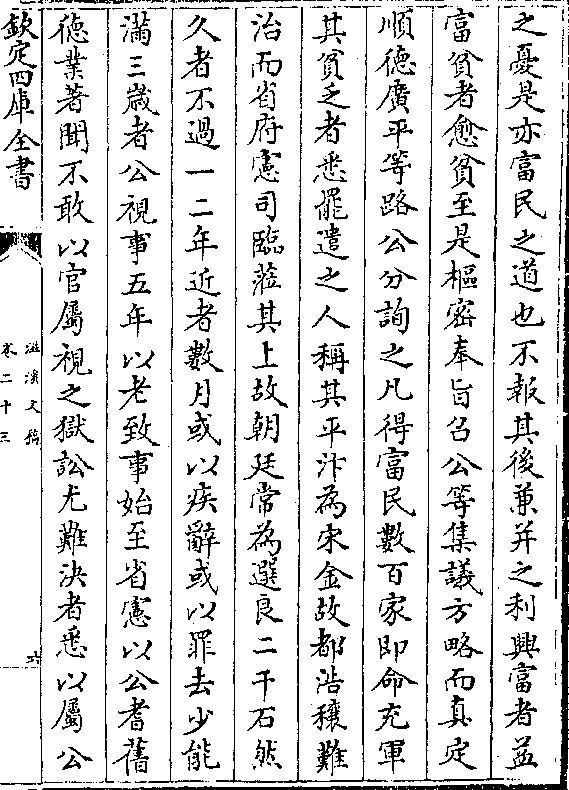 之憂是亦富民之道也不報其後兼并之利興富者益
富貧者愈貧至是樞密奉旨召公等集議方略而真定
順德廣平等路公分詢之凡得富民數百家即命充軍
其貧乏者悉罷遣之人稱其平汴為宋金故都浩穰難
治而省府憲司臨蒞其上故朝廷常為選良二千石然
久者不過一二年近者數月或以疾辭或以罪去少能
滿三歲者公視事五年以老致事始至省憲以公耆舊
徳業著聞不敢以官屬視之獄訟尤難決者悉以屬公
欽定四庫全書
滋溪文稿
卷二十三
六